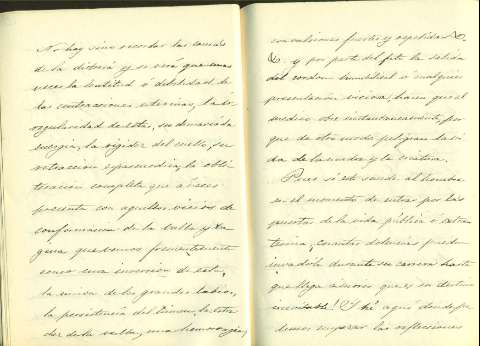 No hay sino recordar las causas
de la distocia y se verá que unas
veces la lentitud ó debilidad de
las contracciones uterinas, la ir
regularidad de estas, su demasiada
energia, la rigidez del cuello, su
retraccion espasmodica, la obli
teracion completa que a veces
presenta con aquellos vicios de
conformacion de la vulva y va
gina que vemos frecuentemente
como una inversion de esta,
la union de los grandes labios,
la persistencia del himen, la
der de la vulva, una hemorragia,
convulsiones fuertes y repetidas &
& y por parte del feto la salida
del cordon umbilical ó cualquier
presentacion viciosa, hacen que el
medico obre instantaneamente, por
que de otro modo peligran la vi
da de la madre y la criatura.
Pues si esto sucede al hombre
en el momento de entrar por las
puertas de la vida pública ó extra
terina, cuantas dolencias pueden
invadirle durante su carrera hasta
que llega a morir que es su destino
inevitable! Y hé aqui donde po
demos empezar las reflecciones